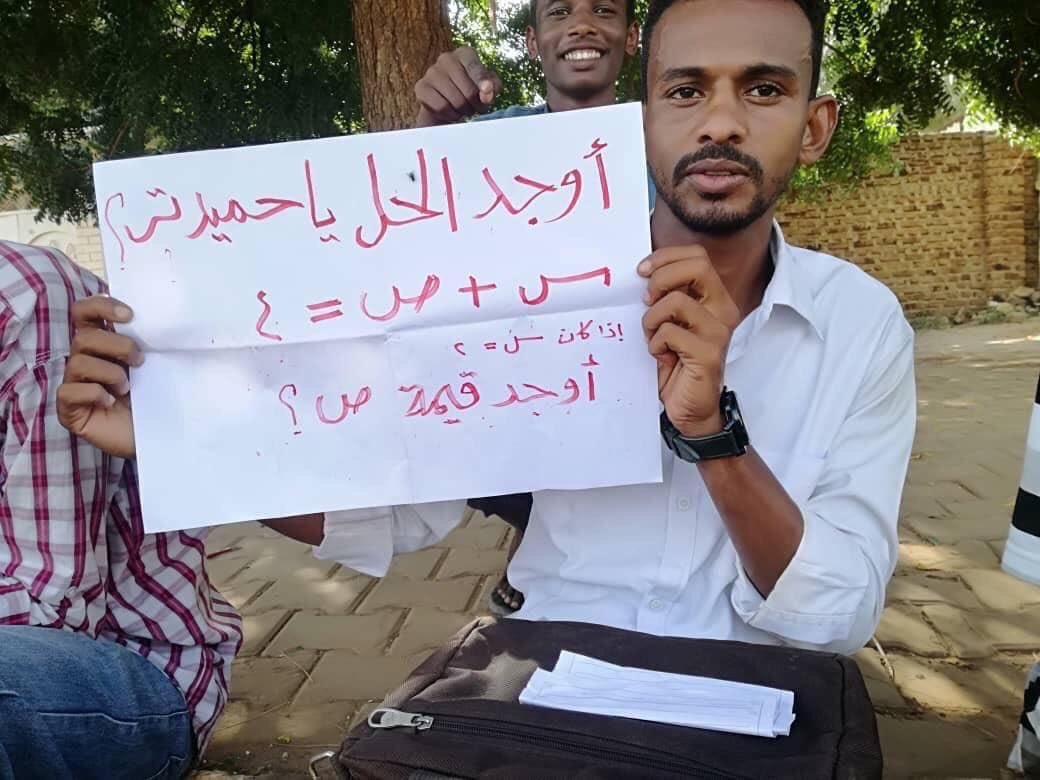 أوجد الحل يا حميدتي؟
س + ص = ٤
إذا كان س = ٢
أوجد قيمة ص؟